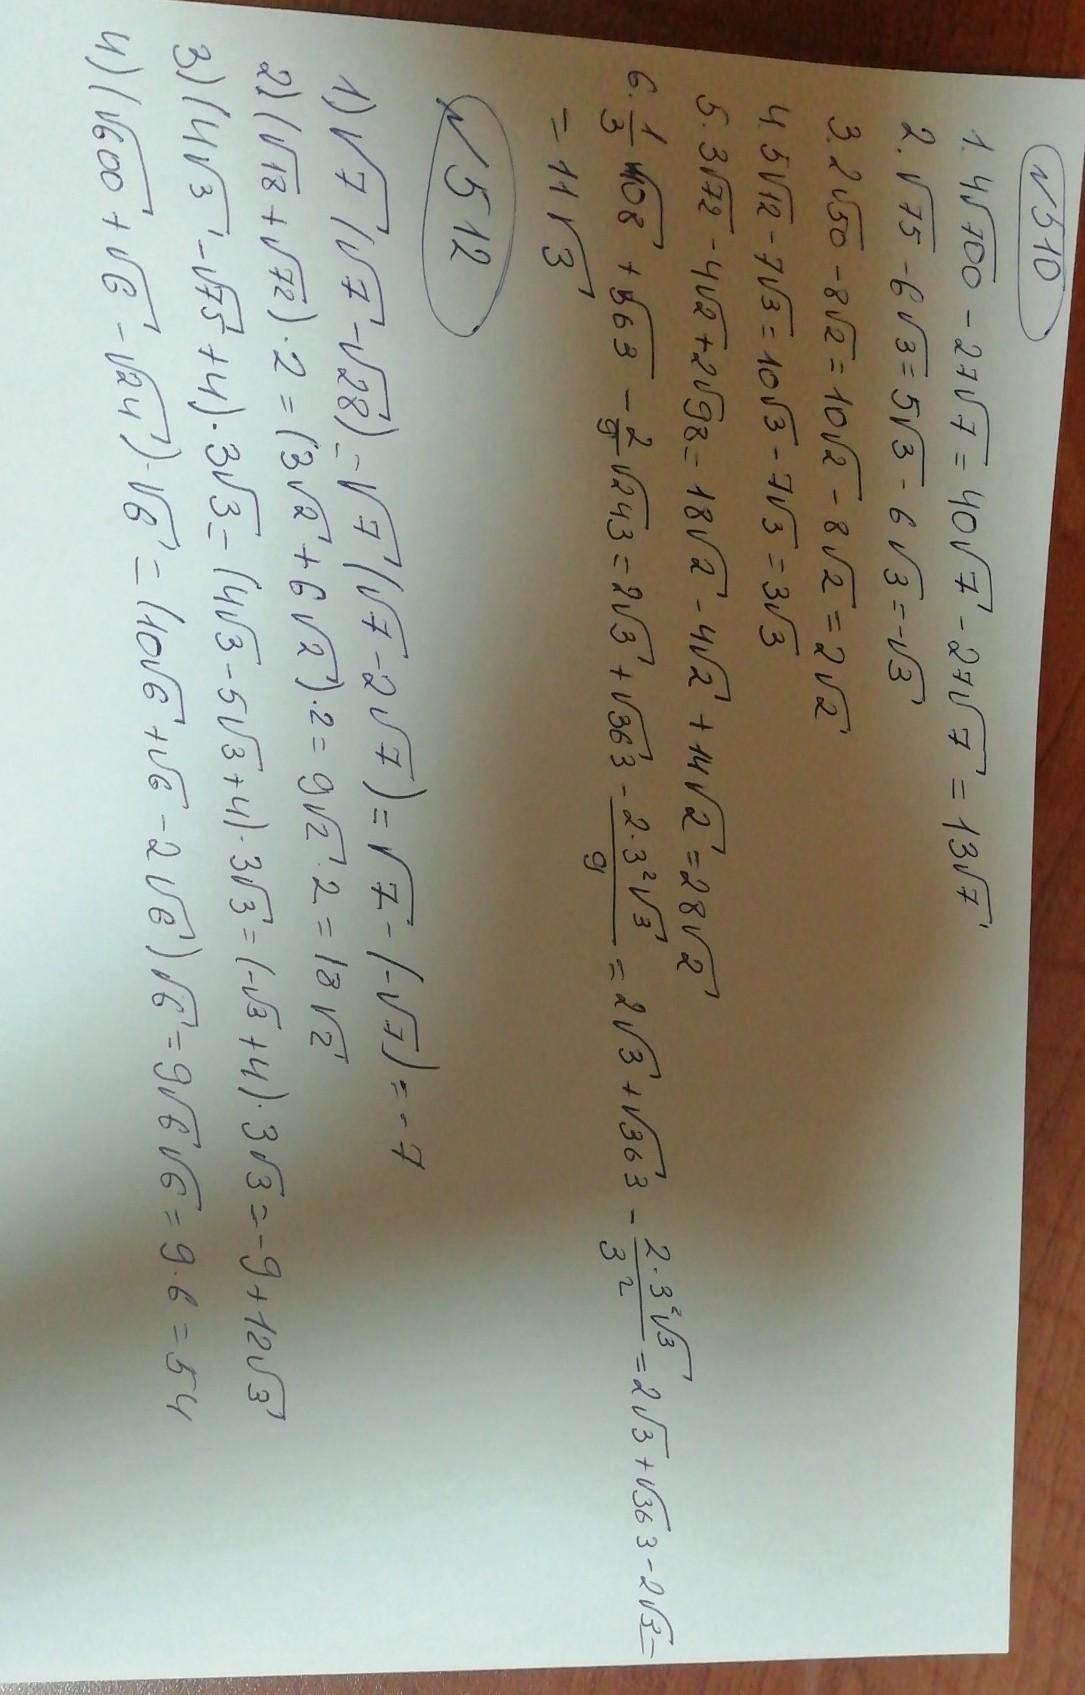 №510
1. 4√700 - 27√7 = 40√7 - 27√7 = 13√7
2. √75 - 6√3 = 5√3 - 6√3 = -√3
3. 2√50 - 8√2 = 10√2 - 8√2 = 2√2
4. 5√12 - 7√3 = 10√3 - 7√3 = 3√3
5. 3√72 - 4√2 + 2√98 = 18√2 - 4√2 + 14√2 = 28√2
6. 1/3 √108 + √363 - 2/9 √243 = 2√3 + √363 - (2·3²√3)/9 = 2√3 + √363 - (2·3²√3)/3² = 2√3 + √363 - 2√3 =
= 11√3
№512
1) √7 (√7 - √28) = √7 (√7 - 2√7) = √7 - (-√7) = -7
2) (√18 + √72)·2 = (3√2 + 6√2)·2 = 9√2·2 = 18√2
3) (4√3 - √75 + 4)·3√3 = (4√3 - 5√3 + 4)·3√3 = (-√3 + 4)·3√3 = -9 + 12√3
4) (√600 + √6 - √24)·√6 = (10√6 + √6 - 2√6)√6 = 9√6√6 = 9·6 = 54